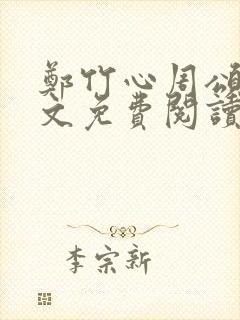 鄭竹心周頌
文免費閱讀
李宗新